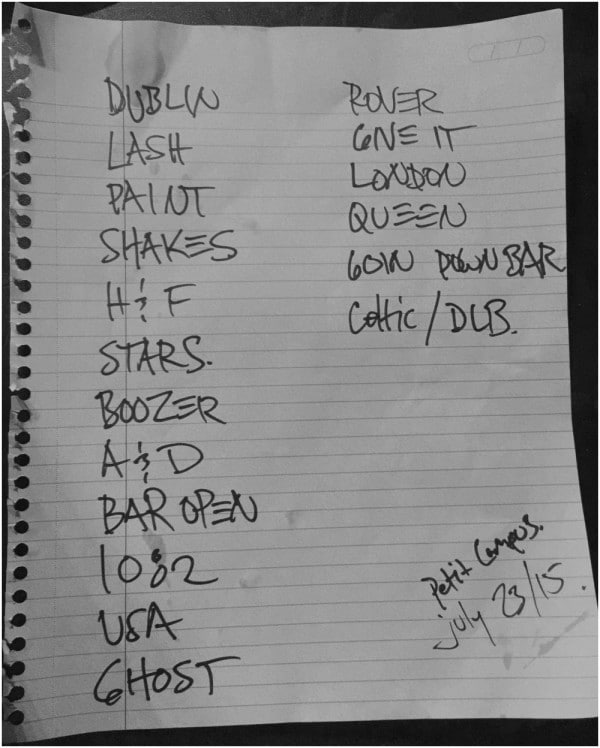 DUBLIN
LASH
PAINT
SHAKES
H & F
STARS.
BOOZER
A & D
BAR OPEN
10:2
USA
GHOST
ROVER
GNE IT
LONDON
QUEEN
GOIN DOWN BAR
Celtic / DLB.
Petit Campus.
july 23/15.